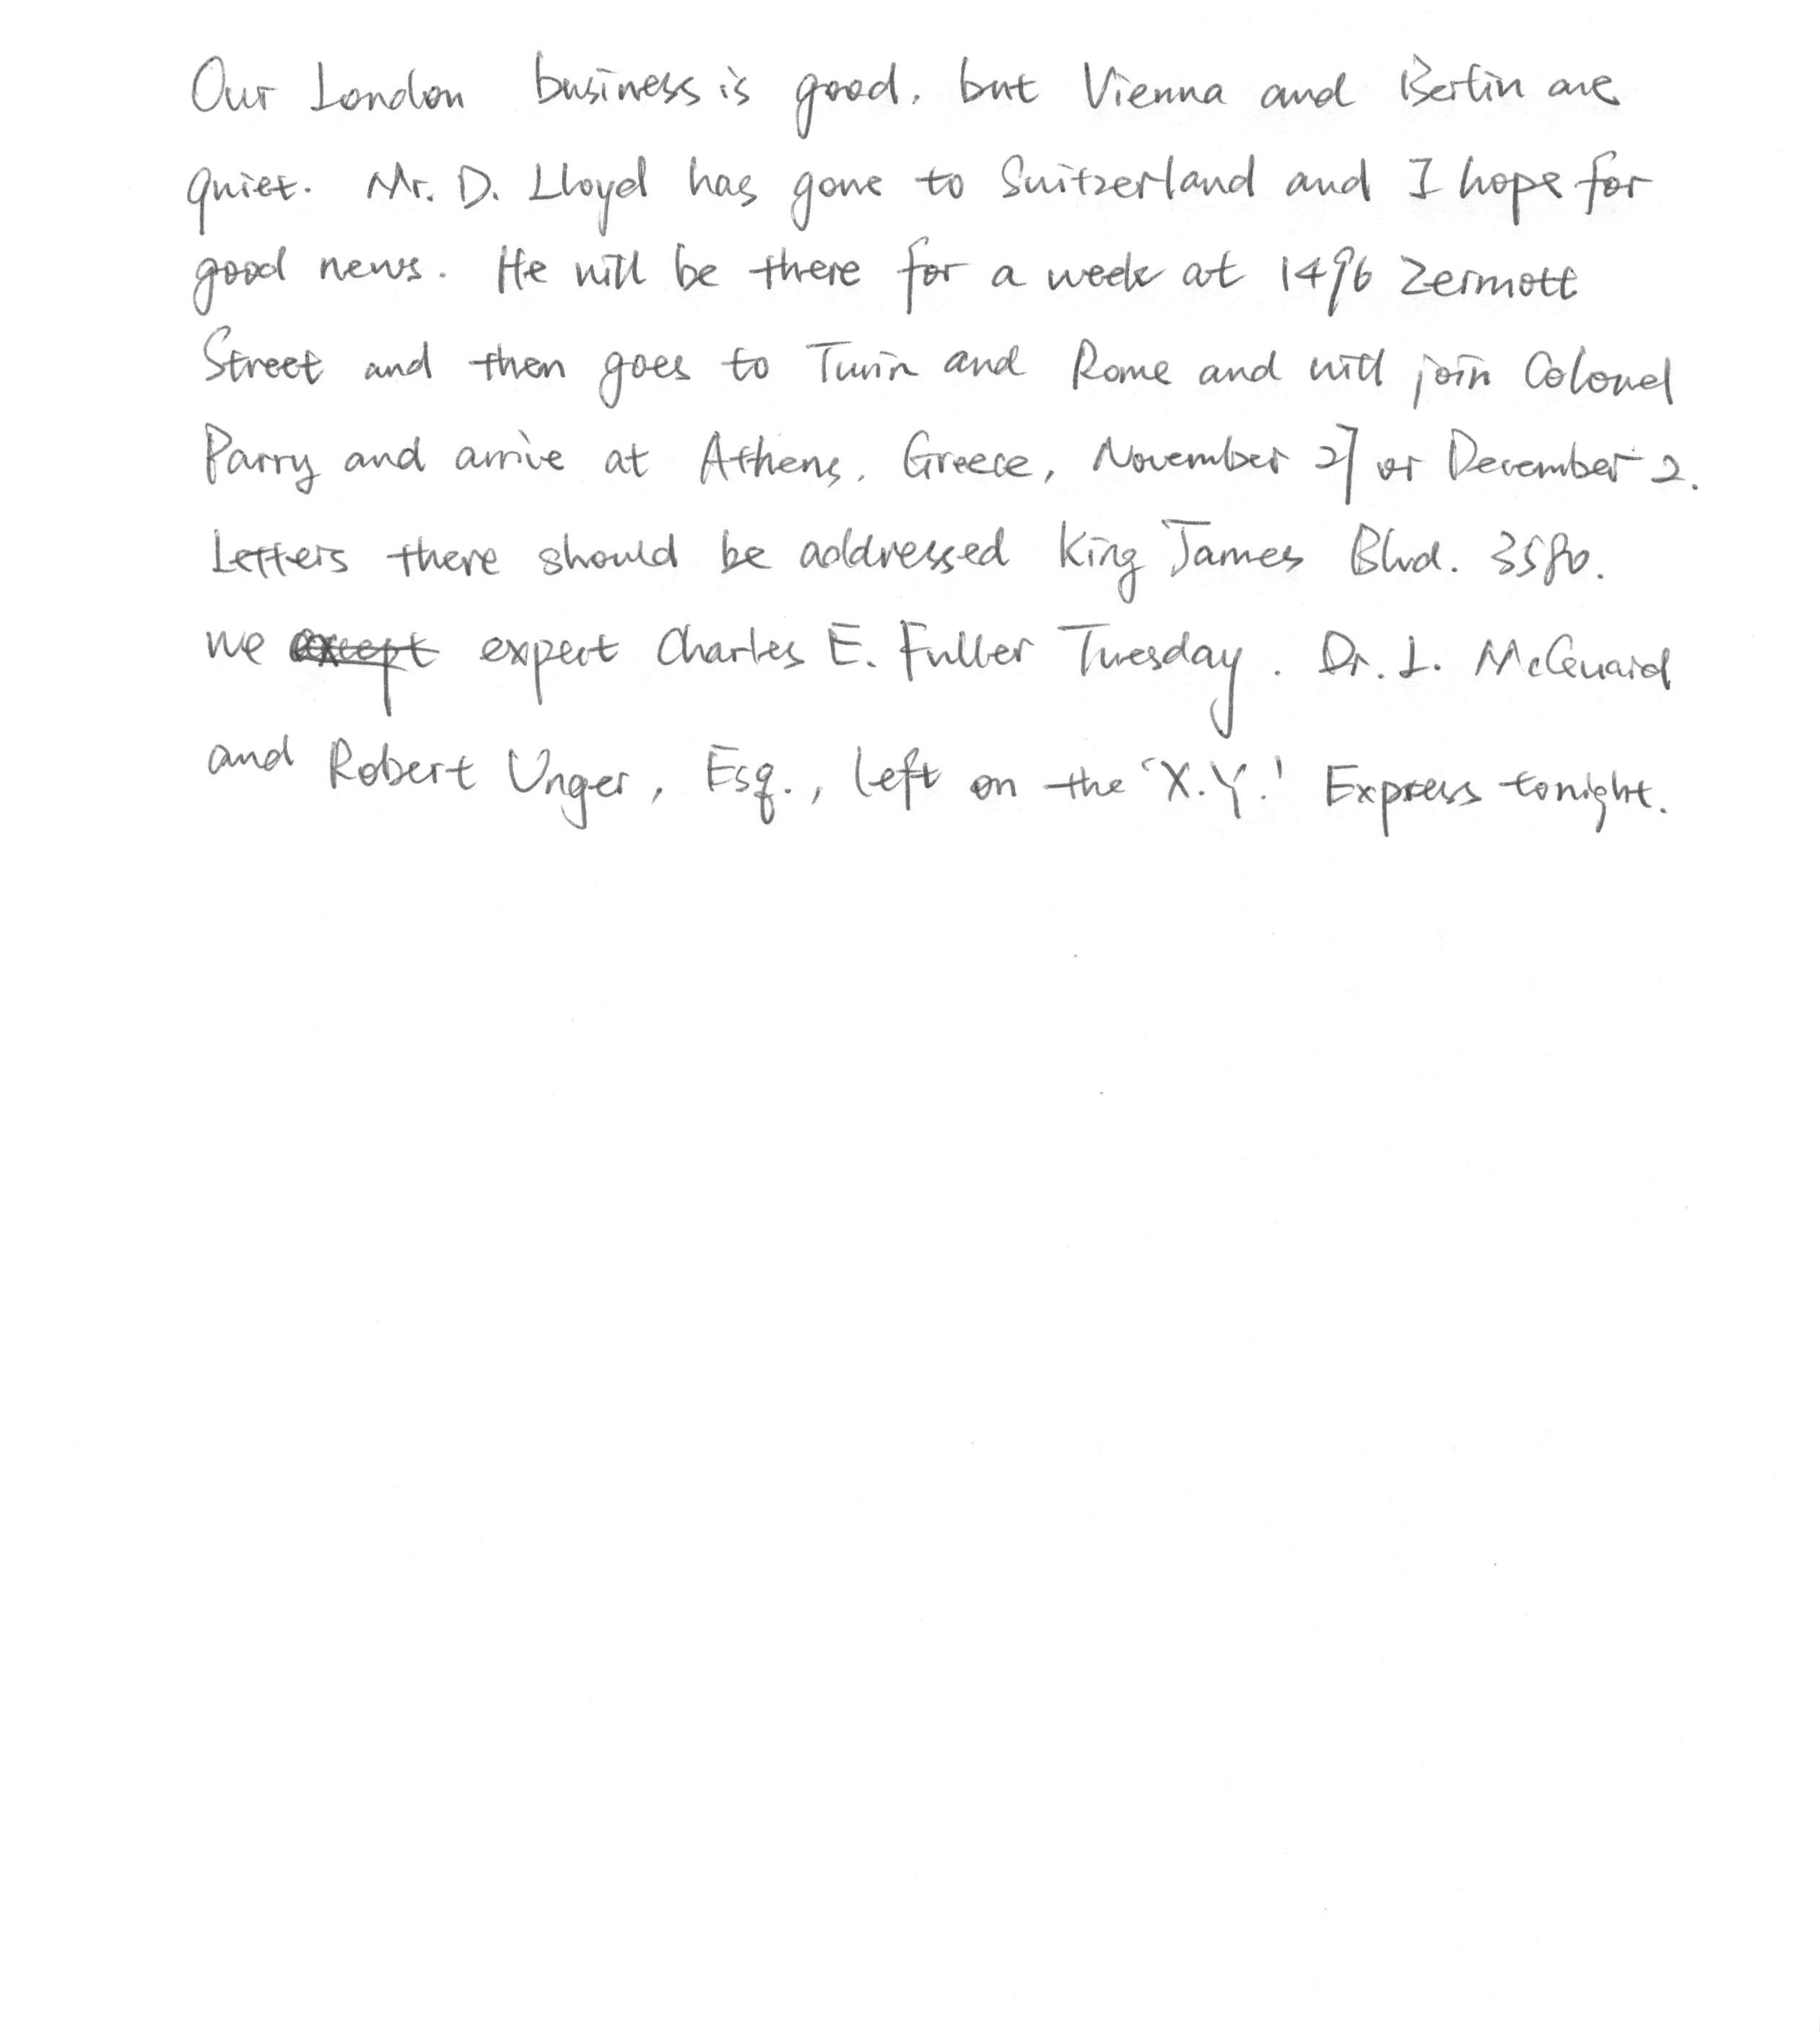 Our London business is good, but Vienna and Berlin are
quiet. Mr. D. Lloyd has gone to Switzerland and I hope for
good news. He will be there for a week at 1496 Zermott
Street and then goes to Turin and Rome and will join Colonel
Parry and arrive at Athens, Greece, November 27 or December 2.
Letters there should be addressed King James Blvd. 3580.
We expect Charles E. Fuller Tuesday. Dr. L. McQuaid
and Robert Unger, Esq., left on the 'X.Y.' Express tonight.